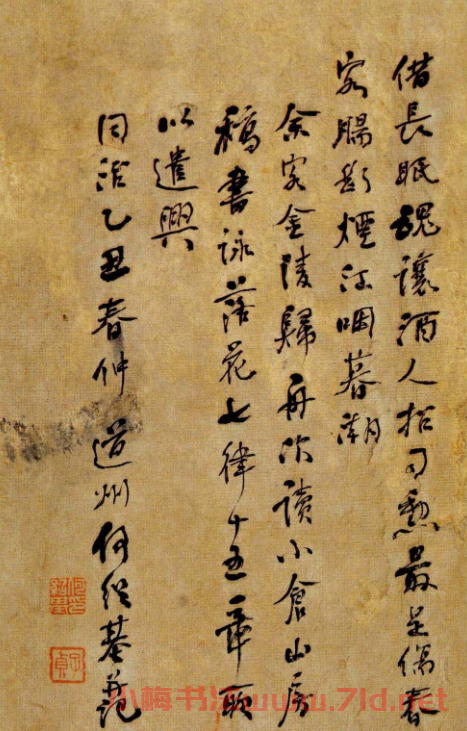 借長眠魂讓酒人招司勳最是傷春
客腸斷煙江咽暮潮
余客金陵歸舟次讀小倉山房
稿書詠落花七律十五章聊
以遣興
同治乙丑春仲道州何紹基並記
小梅书法www.7ld.net